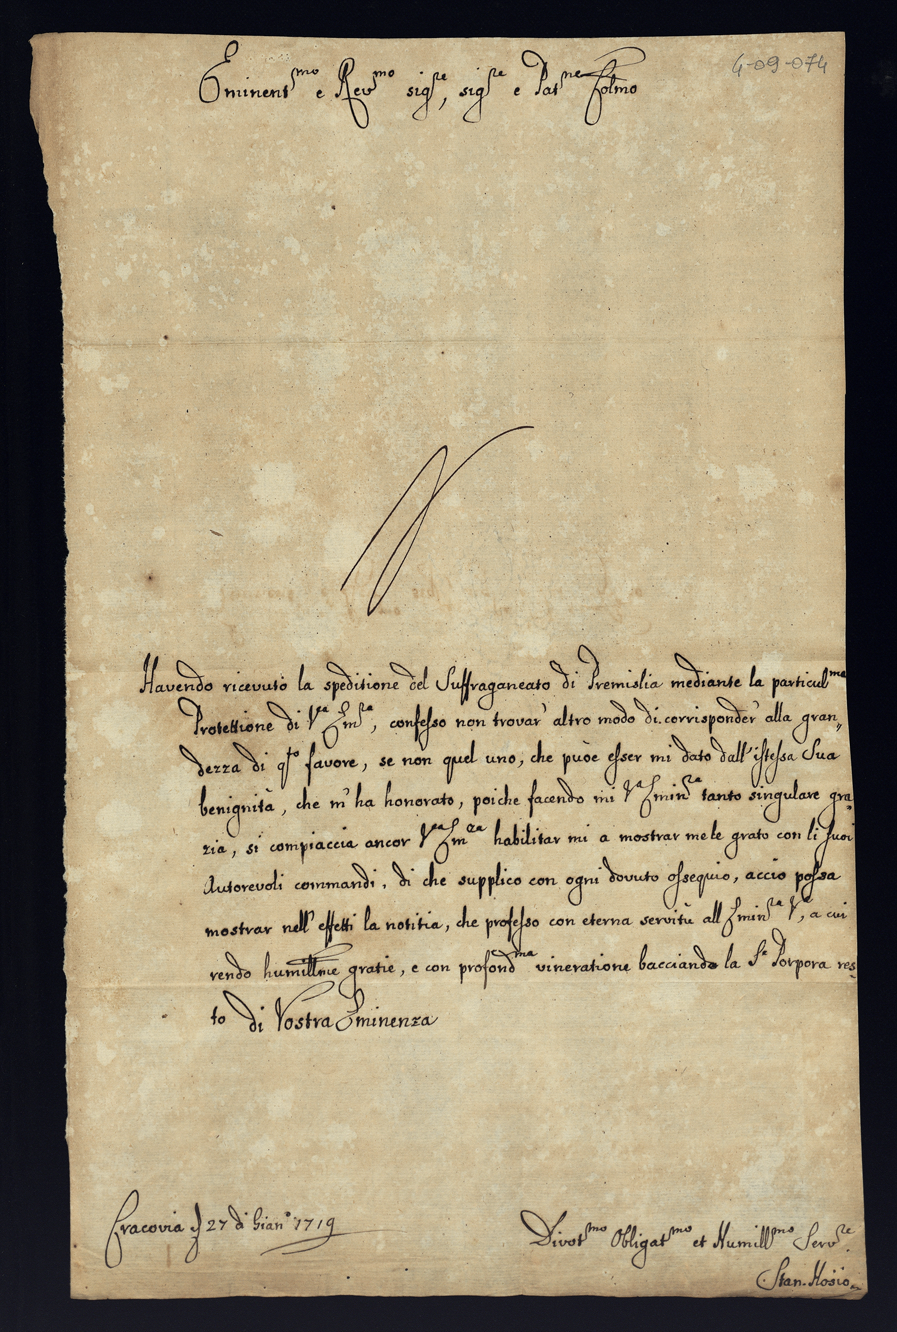 4-09-074
Eminent.mo e Rev.mo sig.re, sig.re e Pat.ne Colmo
Havendo ricevuto la speditione del Suffraganeato di Premislia mediante la particul.ma
Protettione di V.ra Em.za, confesso non trovar' altro modo di corrisponder' alla gran,,
dezza di q.to favore, se non quel uno, che puòe esser mi dato dall' istessa Sua
benignità, che m' ha honorato, poiche facendo mi V.a Emin.za tanto singulare gra,,
zia, si compiaccia ancor V.ra Em.za habilitar mi a mostrar mele grato con li suoi
Autorevoli commandi, di che supplico con ogni dovuto ossequio, accio possa
mostrar nell' effetti la notitia, che professo con eterna servitù all Emin.za V.a, a cui
rendo humillme gratie, e con profond.ma vineratione bacciando la S.a Porpora res,,
to di Vostra Eminenza
Cracovia 27 di Gian.o 1719
Divot.mo Obligat.mo et Humill.mo Serv.re
Stan. Hosio